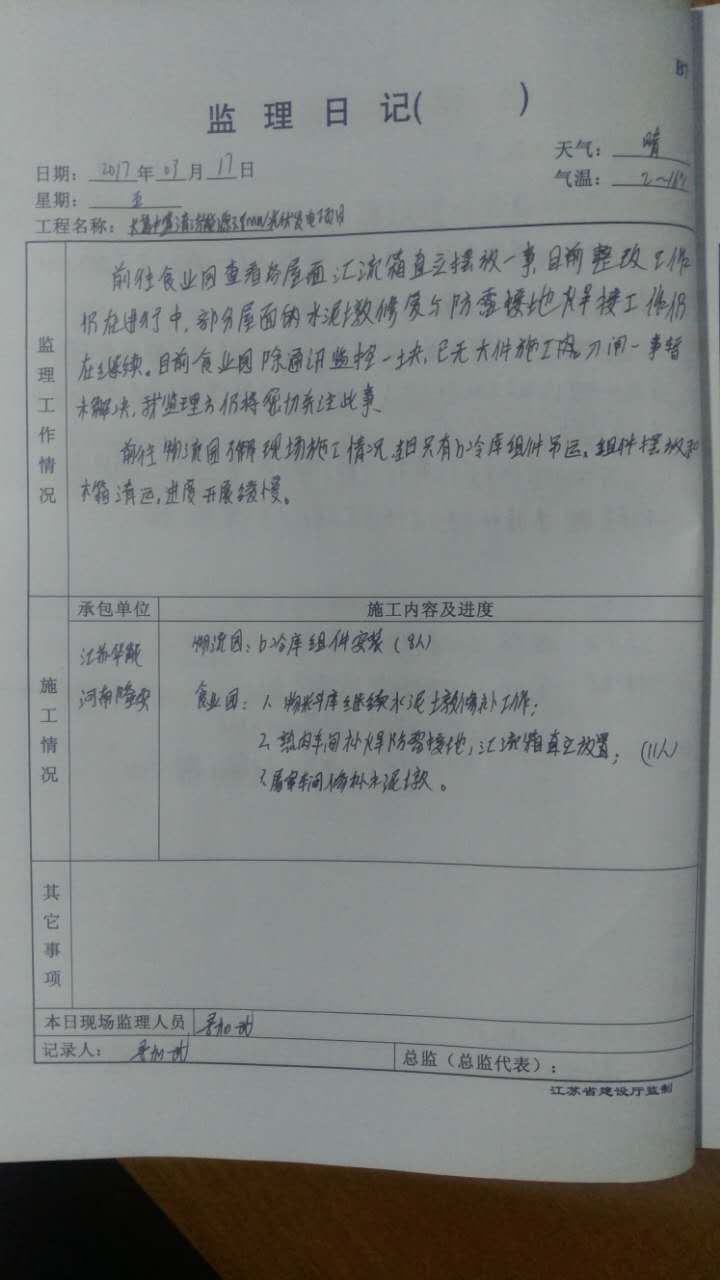 B7
监 理 日 记( )
天气： 晴
日期： 2017 年 03 月 17 日
气温： 2~16℃
星期： 五
工程名称： 光伏发电项目
监理工作情况
前往食业园查看各屋面汇流箱直立摆放一事，目前整改工作
仍在进行中，部分屋面的水泥墩修复与防雷接地焊接工作仍
在继续。目前食业园除通讯监控一块，已无大件施工内容，刀闸一事暂
未解决，我监理方仍将密切关注此事。
前往物流园了解现场施工情况，今日只有b冷库组件吊运。组件摆放和
木箱清运，进度开展缓慢。
施工情况
承包单位 施工内容及进度
江苏华能 物流园：b冷库组件安装（8人）
河南 食业园：1、物料库继续水泥墩修补工作；
2、熟肉车间补焊防雷接地，汇流箱直立放置； （11人）
3、屠宰车间修补水泥墩。
其它事项
本日现场监理人员
记录人： 总监（总监代表）：
江苏省建设厅监制